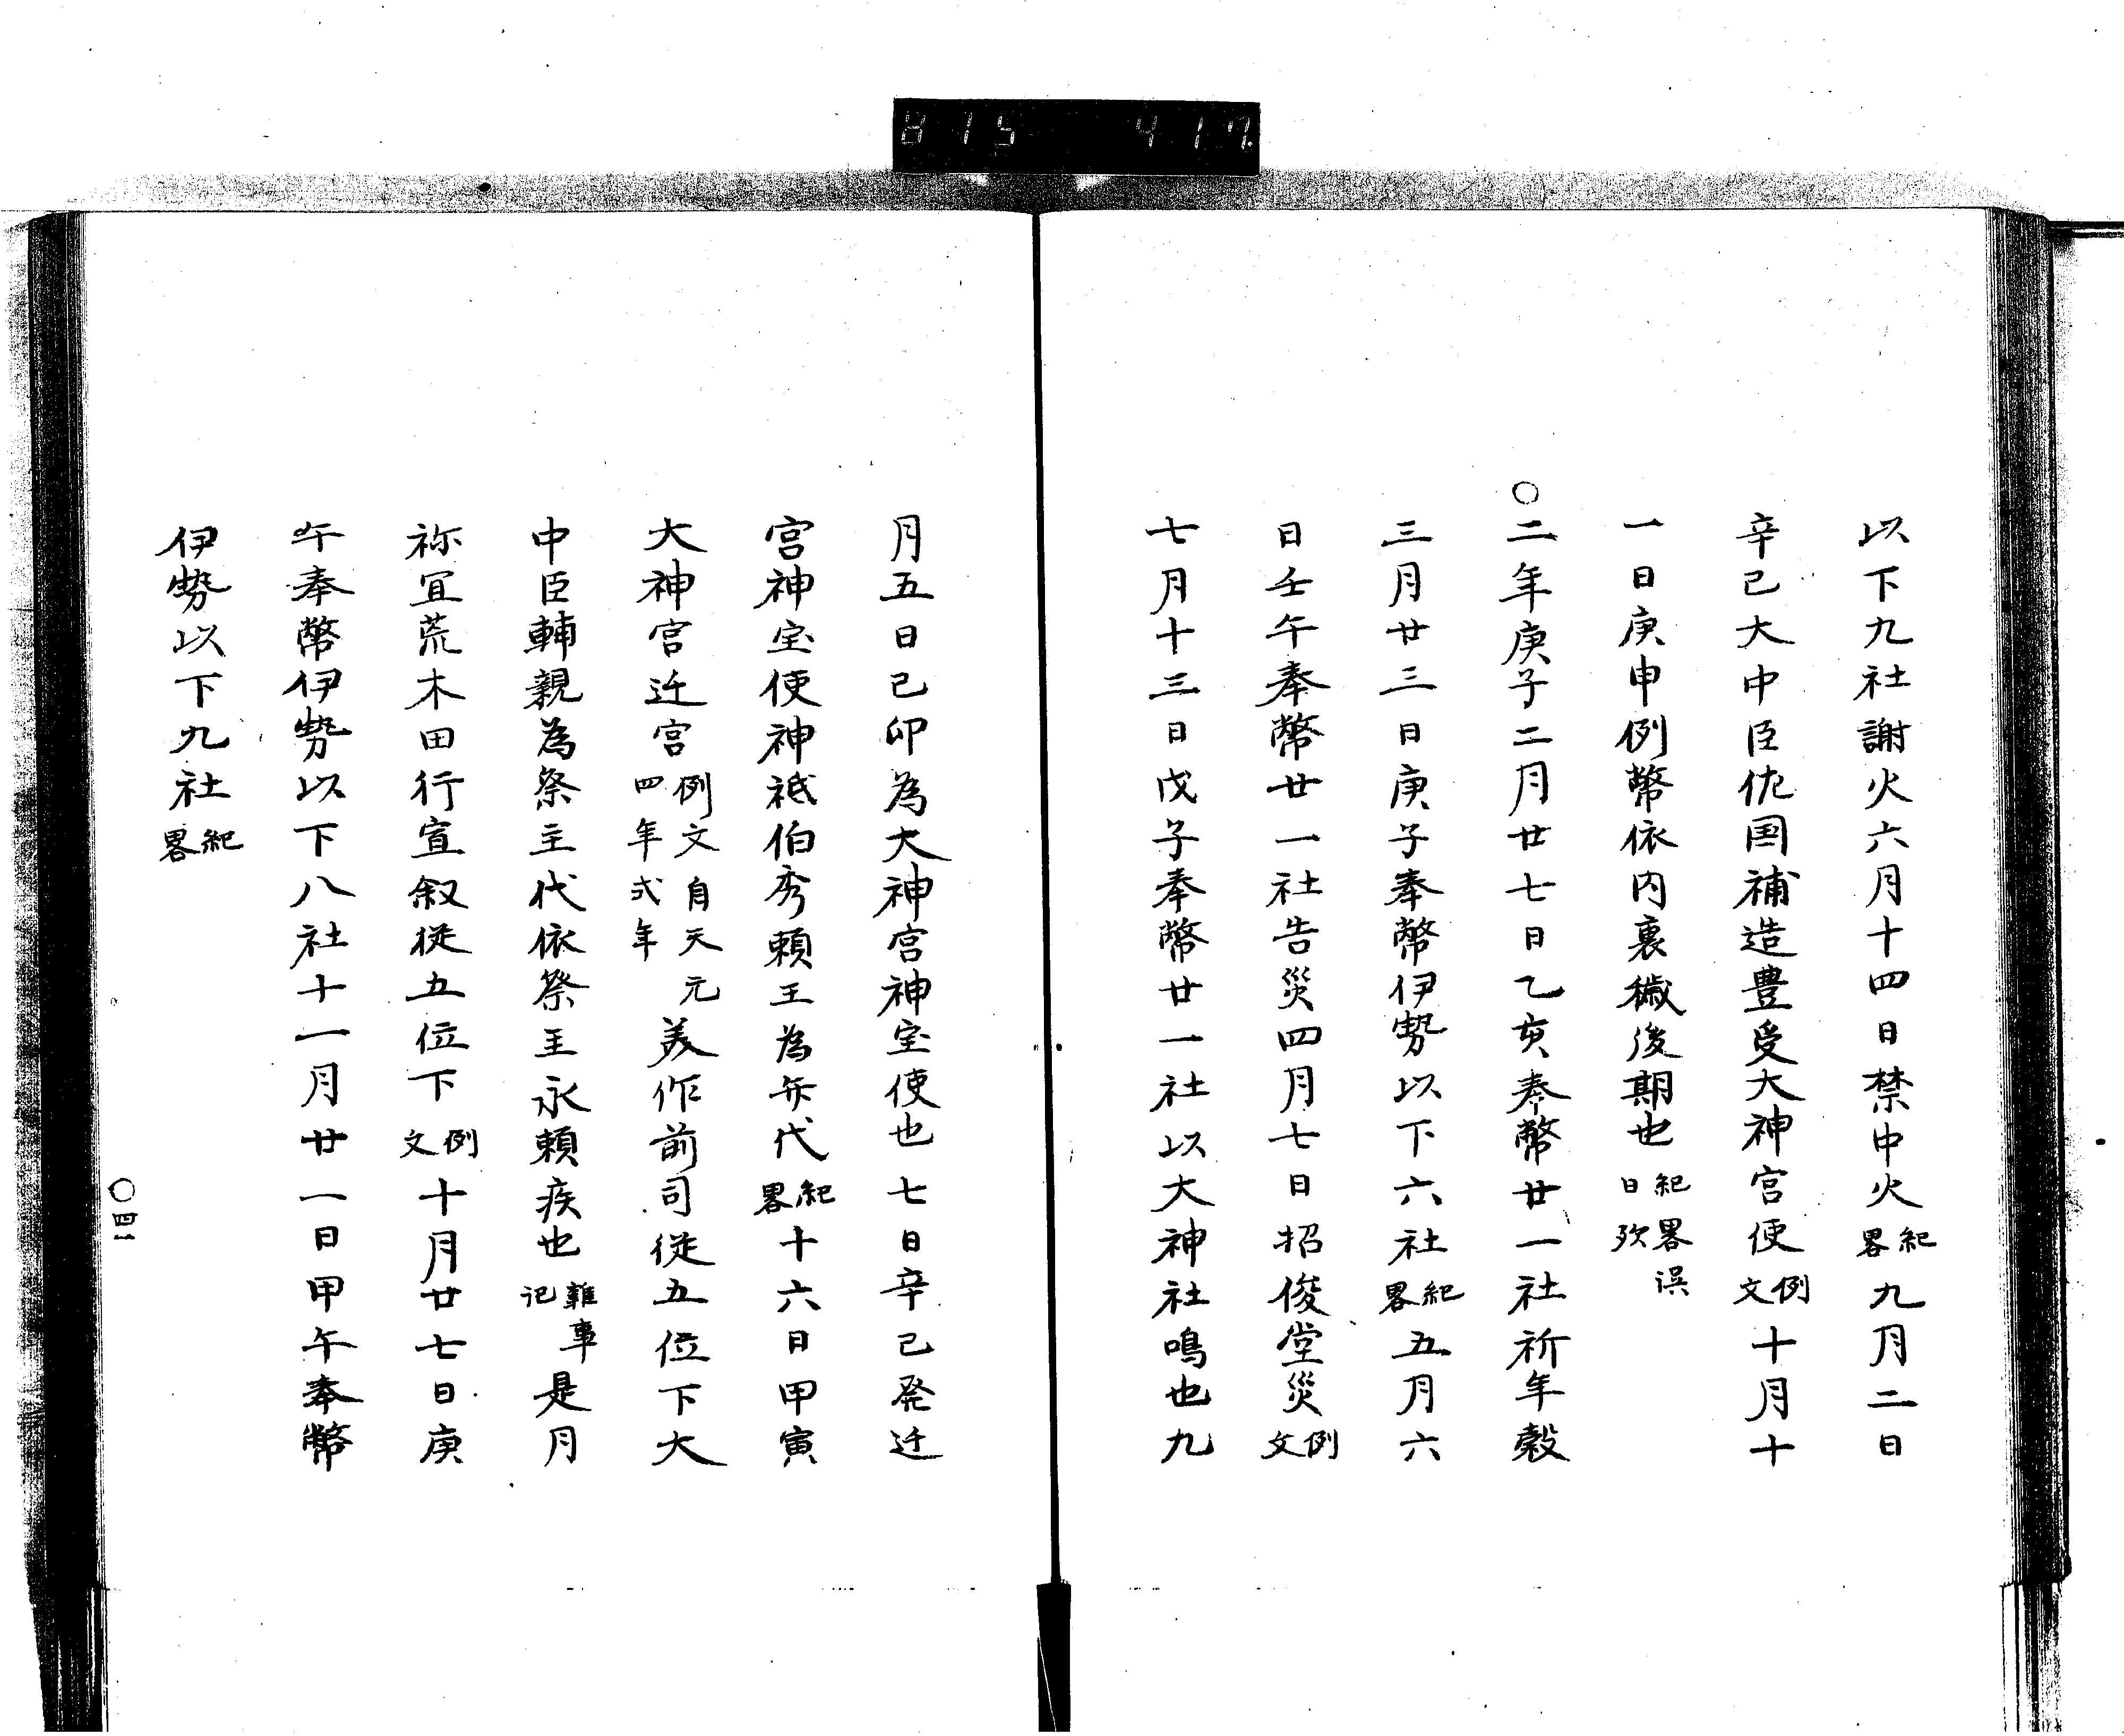 815 417
以下九社謝火六月十四日禁中火紀畧九月二日
辛已大中臣佐国補造豊受大神宮使例文十月十
一日庚申例幣依内裏穢後期也紀畧誤日欤
○二年庚子二月廿七日乙亥奉幣廿一社祈年穀
三月廿三日庚子奉幣伊勢以下六社紀畧五月六
日壬午奉幣廿一社告災四月七日招俊堂災例文
七月十三日戊子奉幣廿一社以大神社鳴也九
月五日己卯為大神宮神宝使也七日辛已発迁
宮神宝使神祇伯秀頼王為弁代紀畧十六日甲寅
大神宮迁宮例文自天元四年弍年美作前司従五位下大
中臣輔親為祭主代依祭主永頼疾也雑事記是月
祢宜荒木田行宣叙従五位下例文十月廿七日庚
午奉幣伊勢以下八社十一月廿一日甲午奉幣
伊勢以下九社紀畧
○四一